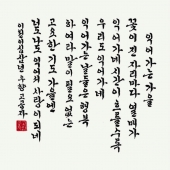 익어가는 가을
꽃이 진 자리마다 열매가
익어가네 시간이 흐를수록
우리도 익어가네
익어가는 날들은 행복
하여라 말이 필요 없는
고요한 기도 가을엔
너도 나도 익어서 사랑이 되네